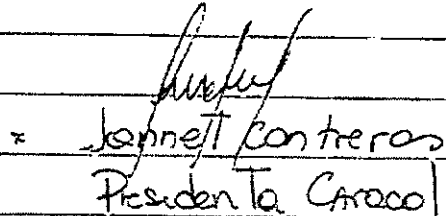 * Jannett Contreras
Presidenta Caracol